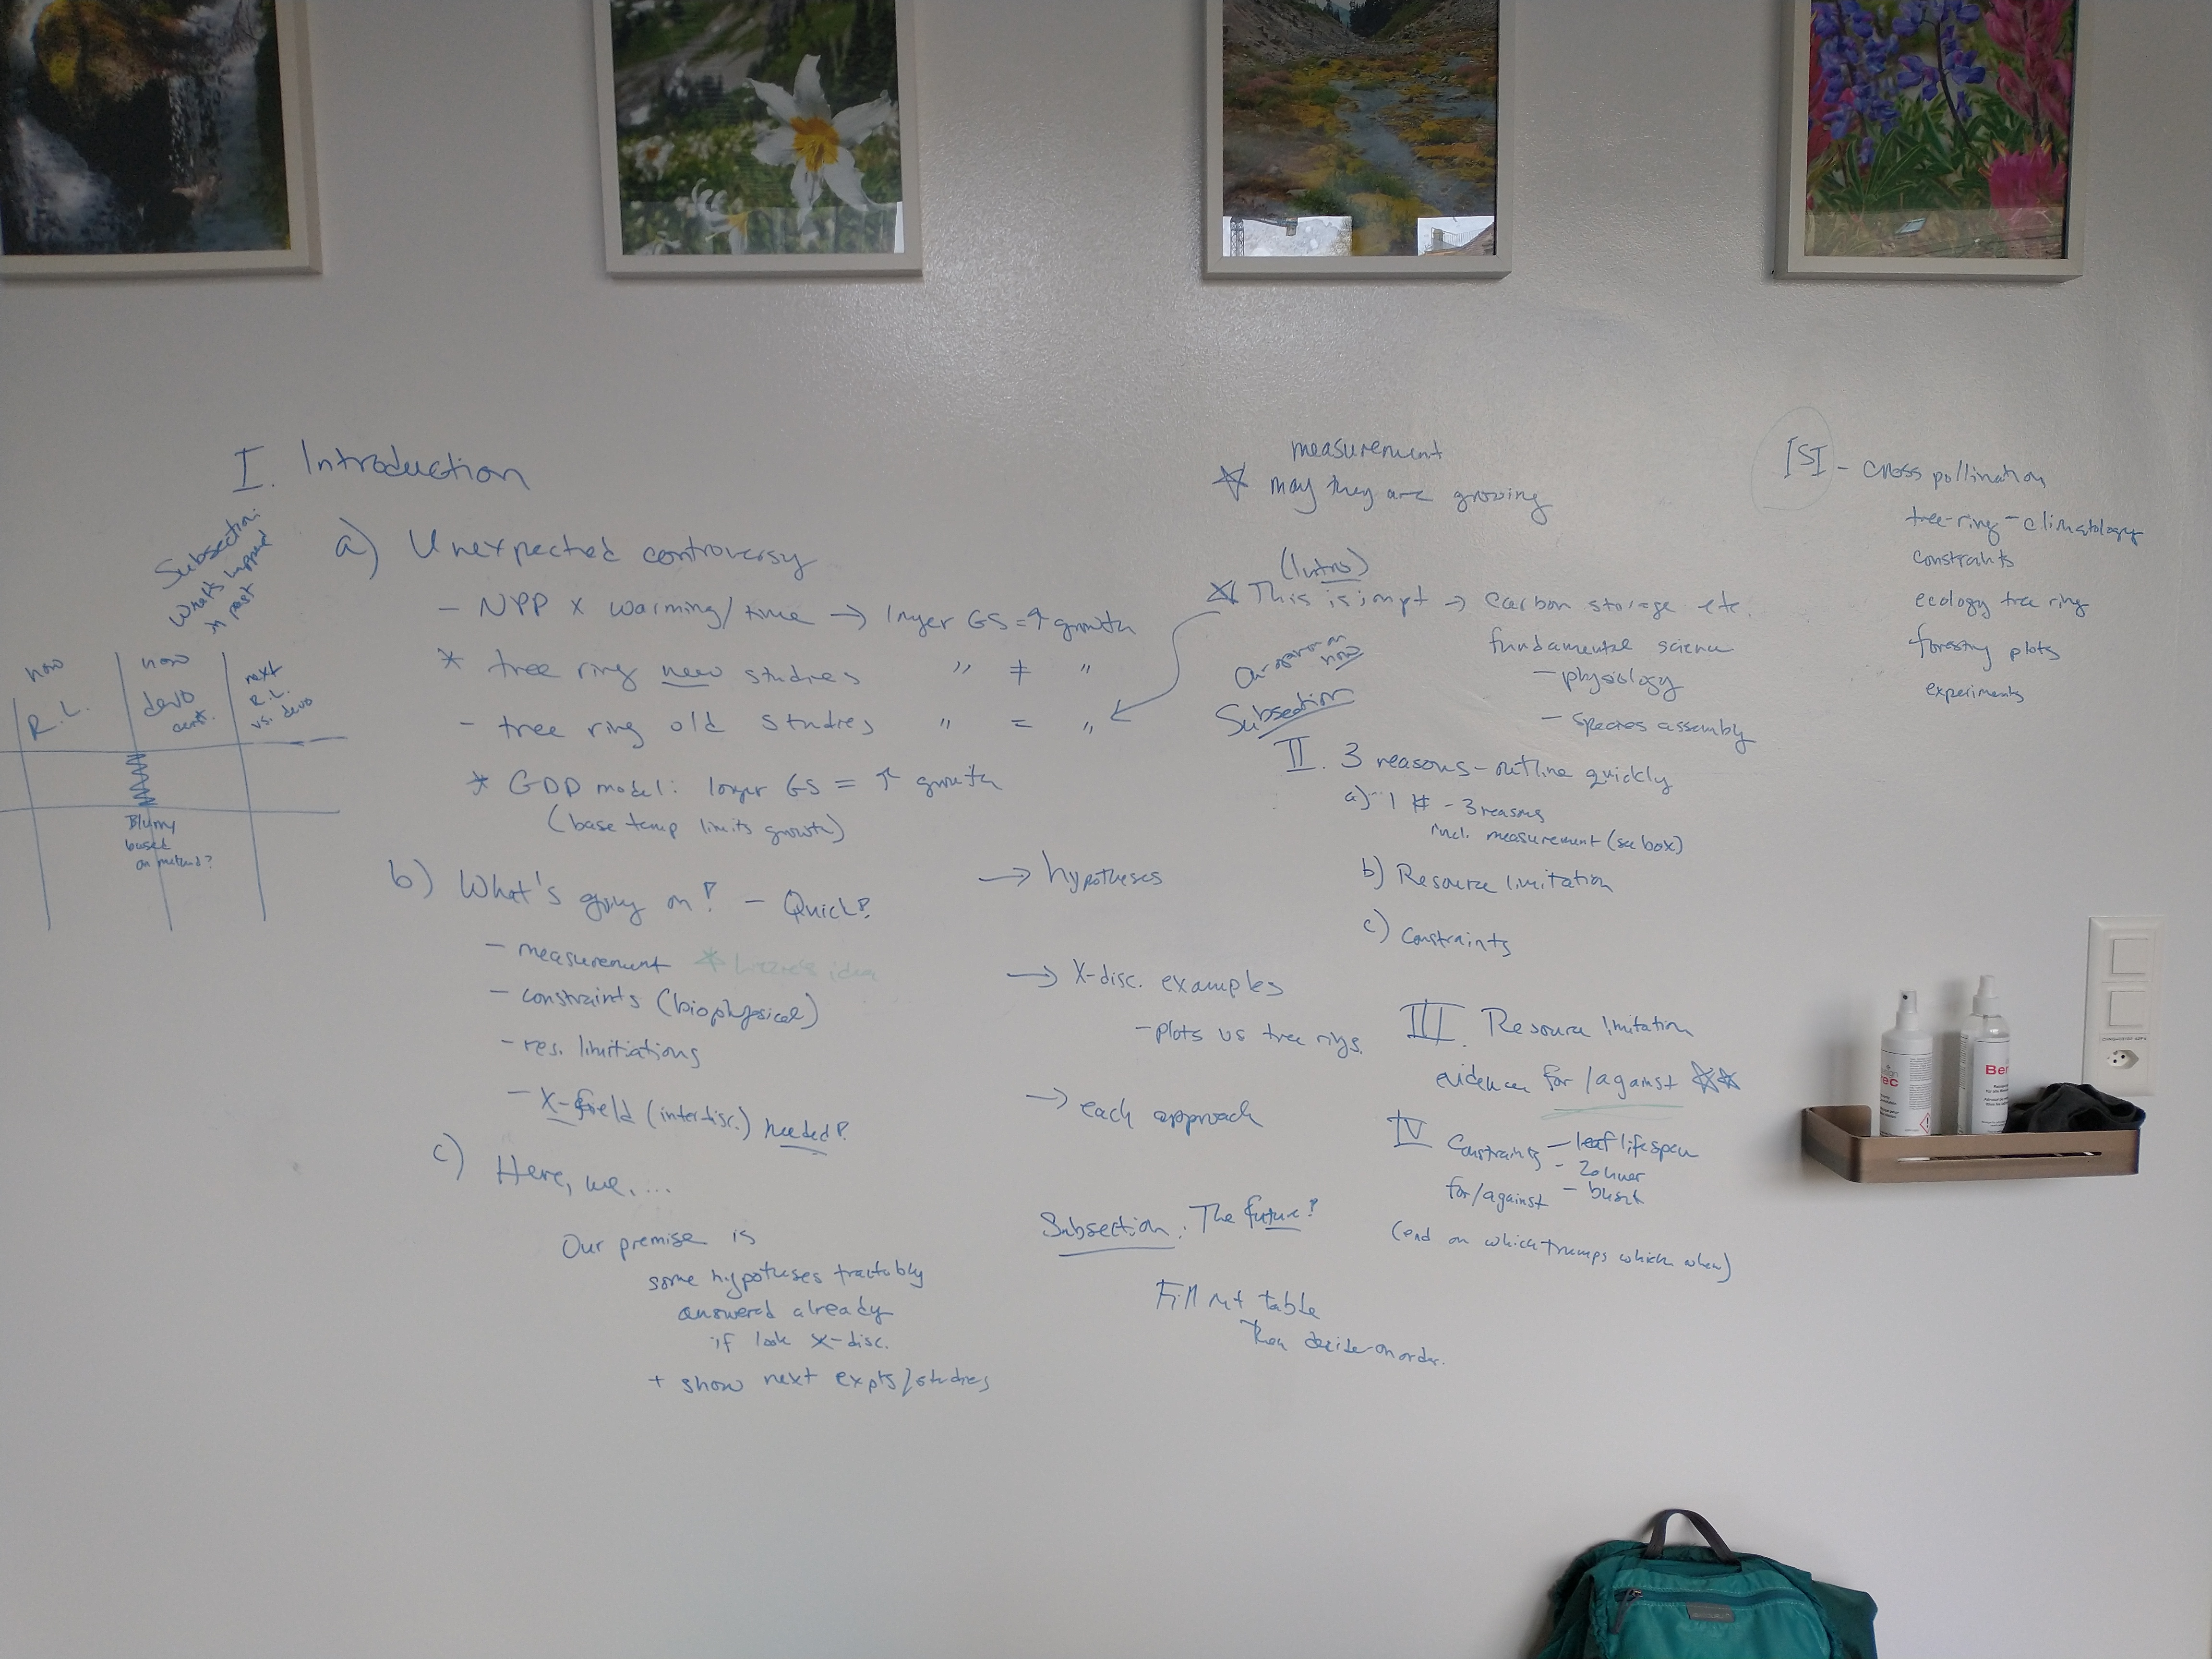 I. Introduction
Subsection:
What's happened
in past
a) Unexpected controversy
- NPP x warming/time → longer GS = ↑ growth
* tree ring new studies " ≠ "
- tree ring old studies " = "
* GDD model: longer GS = ↑ growth
(base temp limits growth)
now
R.L.
now
devo
const.
next
R.L.
vs. devo
Blurry
based
on method?
b) What's going on? - Quick?
- measurement * Lizzie's idea
- constraints (biophysical)
- res. limitiations
- X-field (interdisc.) needed?
c) Here, we....
Our premise is
some hypotheses tractably
answered already
if look X-disc.
+ show next expts/studies
→ hypotheses
→ X-disc. examples
- plots vs tree rings.
→ each approach
Subsection: The future?
Fill out table
Then decide on order.
measurement
☆ may they are growing
(Intro)
☆ This is impt → carbon storage etc.
fundamental science
- physiology
- species assembly
on now
Subsection
II. 3 reasons - outline quickly
a) 1 ¶ - 3 reasons
incl. measurement (see box)
b) Resource limitation
c) Constraints
III. Resource limitation
evidence for/against ☆☆
IV Constraints - leaf lifespan
- Zohner
for/against - burst
(end on which trumps which when)
ISI - cross pollination
tree-ring - climatology
constraints
ecology tree ring
forestry plots
experiments